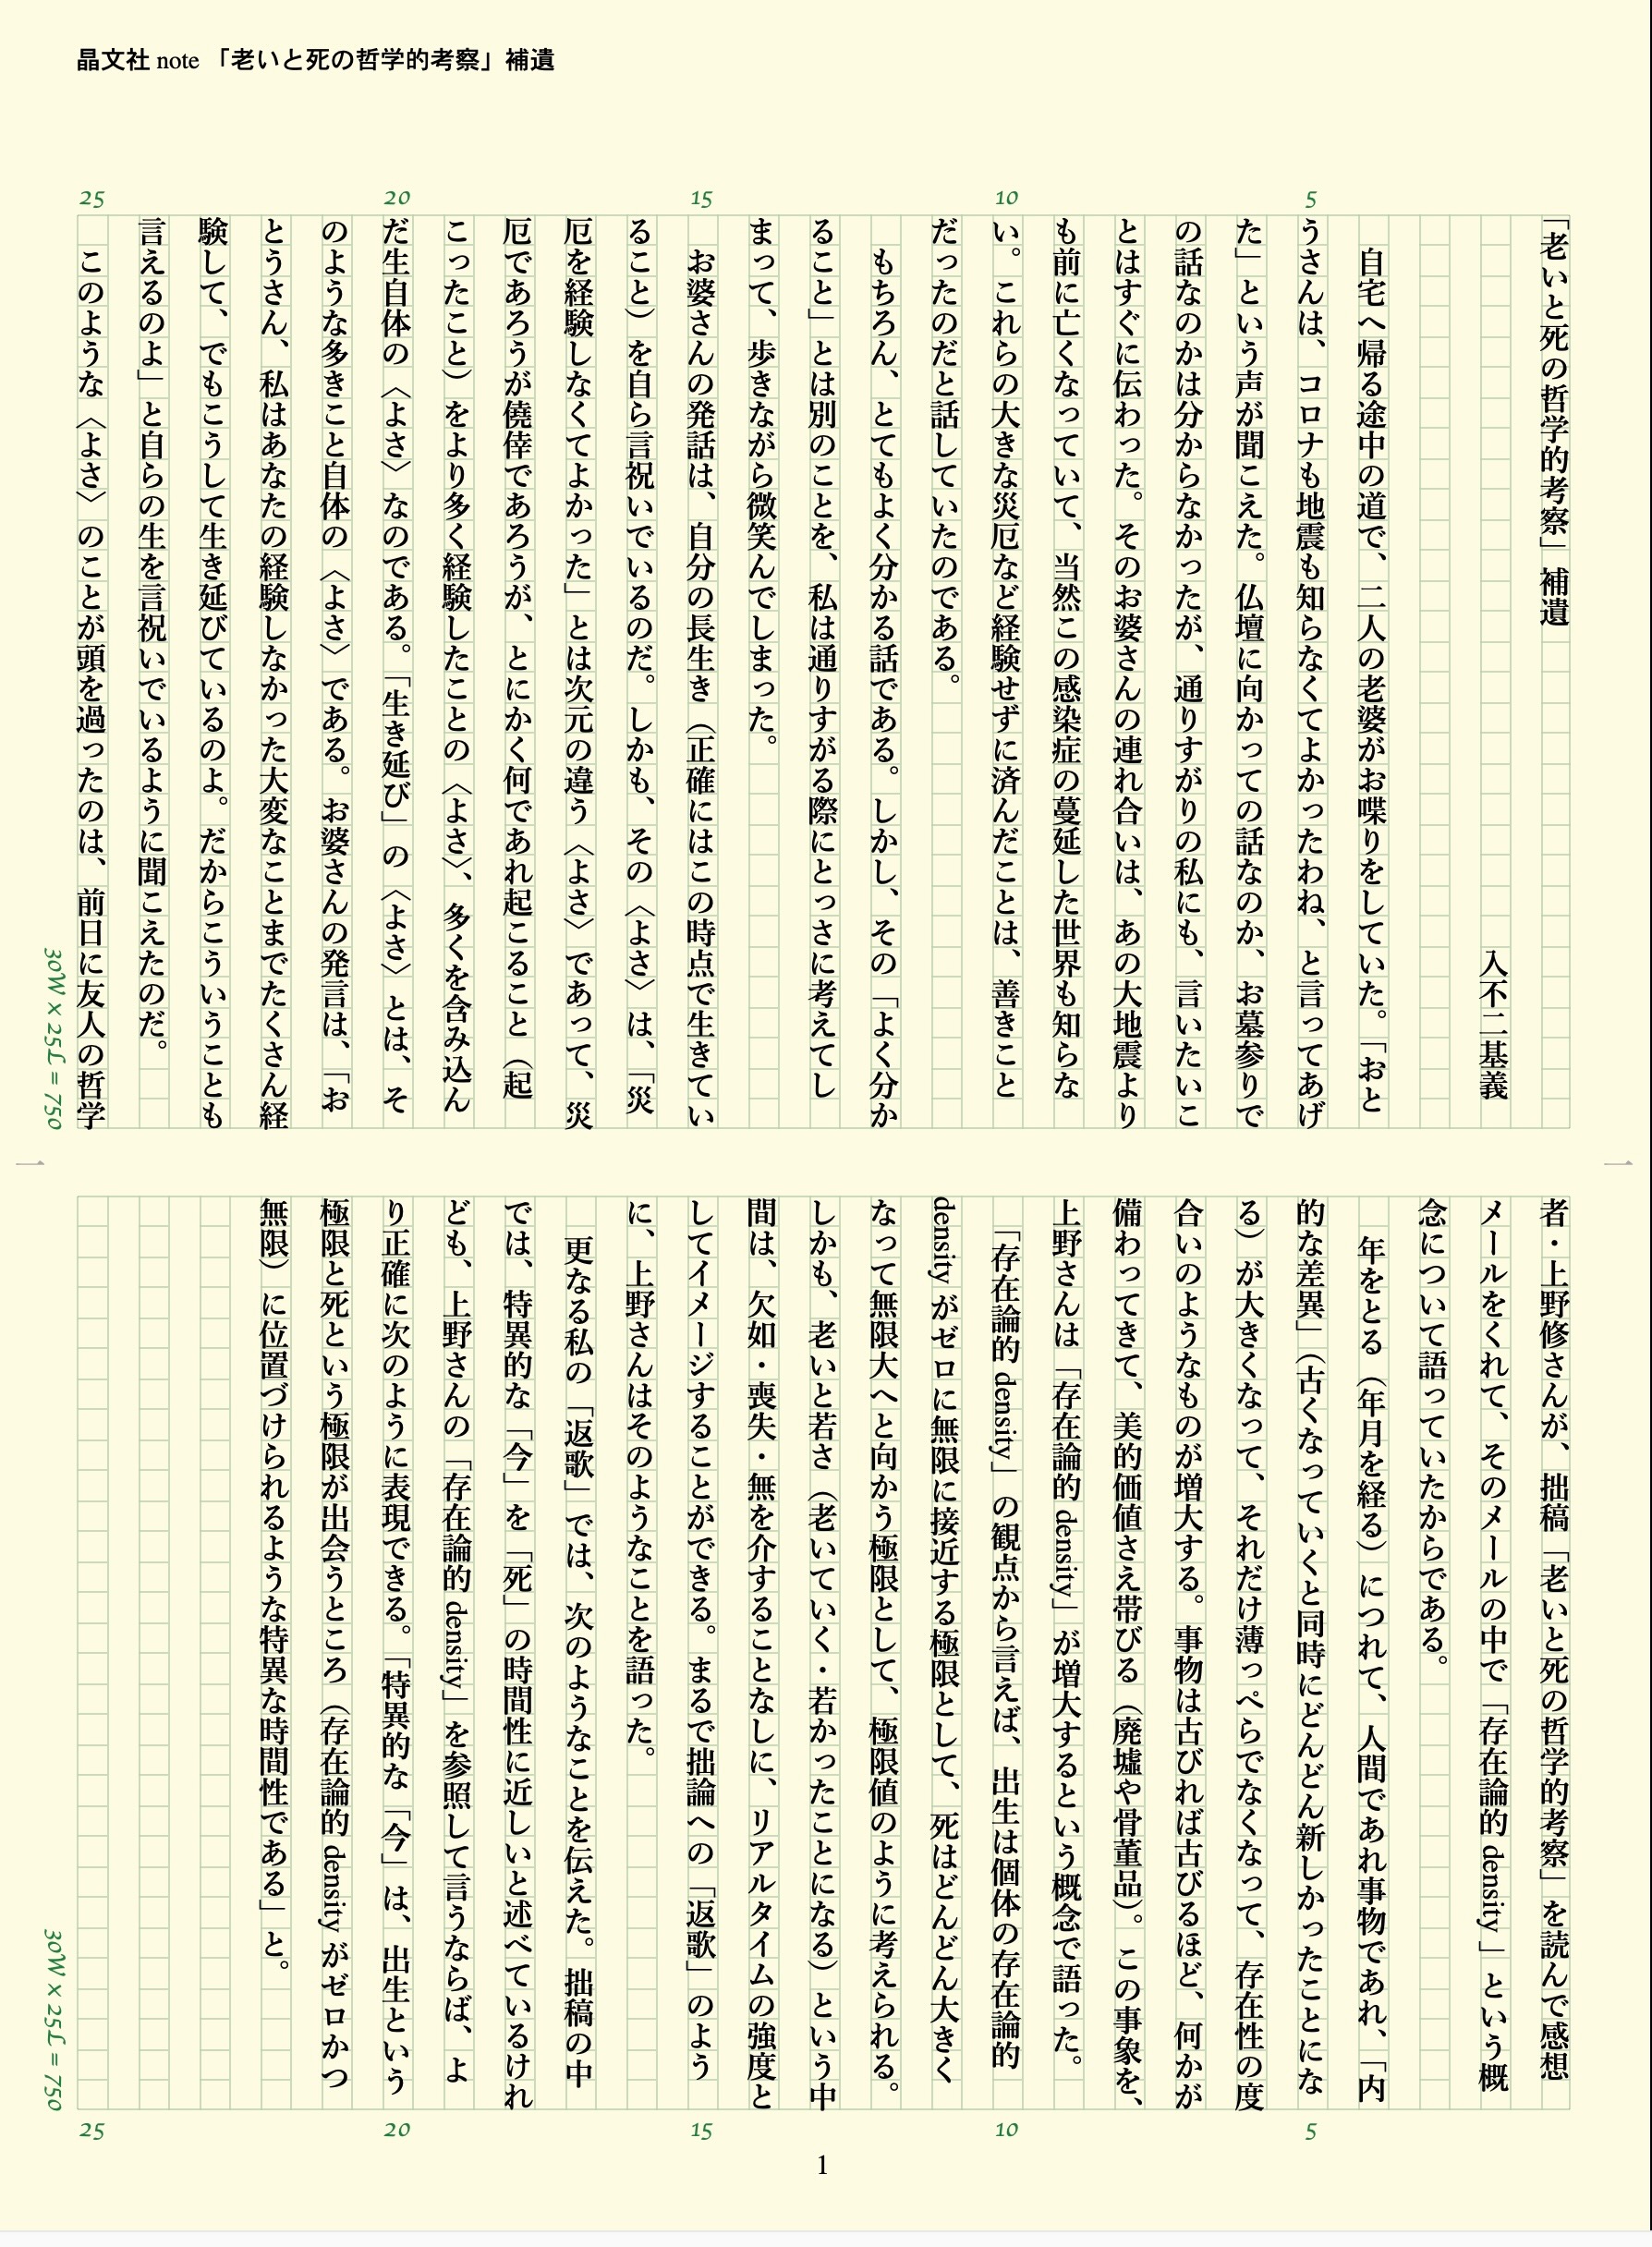 晶文社 note 「老いと死の哲学的考察」補遺
5
10
15
20
25
「老いと死の哲学的考察」補遺
入不二基義
自宅へ帰る途中の道で、二人の老婆がお喋りをしていた。「おと
うさんは、コロナも地震も知らなくてよかったわね、と言ってあげ
た」という声が聞こえた。仏壇に向かっての話なのか、お墓参りで
の話なのかは分からなかったが、通りすがりの私にも、言いたいこ
とはすぐに伝わった。そのお婆さんの連れ合いは、あの大地震より
も前に亡くなっていて、当然この感染症の蔓延した世界も知らな
い。これらの大きな災厄など経験せずに済んだことは、善きこと
だったのだと話していたのである。
もちろん、とてもよく分かる話である。しかし、その「よく分か
ること」とは別のことを、私は通りすがる際にとっさに考えてし
まって、歩きながら微笑んでしまった。
お婆さんの発話は、自分の長生き（正確にはこの時点で生きてい
ること）を自ら言祝いでいるのだ。しかも、その〈よさ〉は、「災
厄を経験しなくてよかった」とは次元の違う〈よさ〉であって、災
厄であろうが僥倖であろうが、とにかく何であれ起こること（起
こったこと）をより多く経験したことの〈よさ〉、多くを含み込ん
だ生自体の〈よさ〉なのである。「生き延び」の〈よさ〉とは、そ
のような多きこと自体の〈よさ〉である。お婆さんの発言は、「お
とうさん、私はあなたの経験しなかった大変なことまでたくさん経
験して、でもこうして生き延びているのよ。だからこういうことも
言えるのよ」と自らの生を言祝いでいるように聞こえたのだ。
このような〈よさ〉のことが頭を過ったのは、前日に友人の哲学
30W×25L=750
一
一
者・上野修さんが、拙稿「老いと死の哲学的考察」を読んで感想
メールをくれて、そのメールの中で「存在論的 density 」という概
念について語っていたからである。
年をとる（年月を経る）につれて、人間であれ事物であれ、「内
的な差異」（古くなっていくと同時にどんどん新しかったことにな
る）が大きくなって、それだけ薄っぺらでなくなって、存在性の度
合いのようなものが増大する。事物は古びれば古びるほど、何かが
備わってきて、美的価値さえ帯びる（廃墟や骨董品）。この事象を、
上野さんは「存在論的 density」が増大するという概念で語った。
「存在論的 density」の観点から言えば、出生は個体の存在論的
density がゼロに無限に接近する極限として、死はどんどん大きく
なって無限大へと向かう極限として、極限値のように考えられる。
しかも、老いと若さ（老いていく・若かったことになる）という中
間は、欠如・喪失・無を介することなしに、リアルタイムの強度と
してイメージすることができる。まるで拙論への「返歌」のよう
に、上野さんはそのようなことを語った。
更なる私の「返歌」では、次のようなことを伝えた。拙稿の中
では、特異的な「今」を「死」の時間性に近しいと述べているけれ
ども、上野さんの「存在論的 density」を参照して言うならば、よ
り正確に次のように表現できる。「特異的な「今」は、出生という
極限と死という極限が出会うところ（存在論的 density がゼロかつ
無限）に位置づけられるような特異な時間性である」と。
30W×25L=750
5
10
15
20
25
1